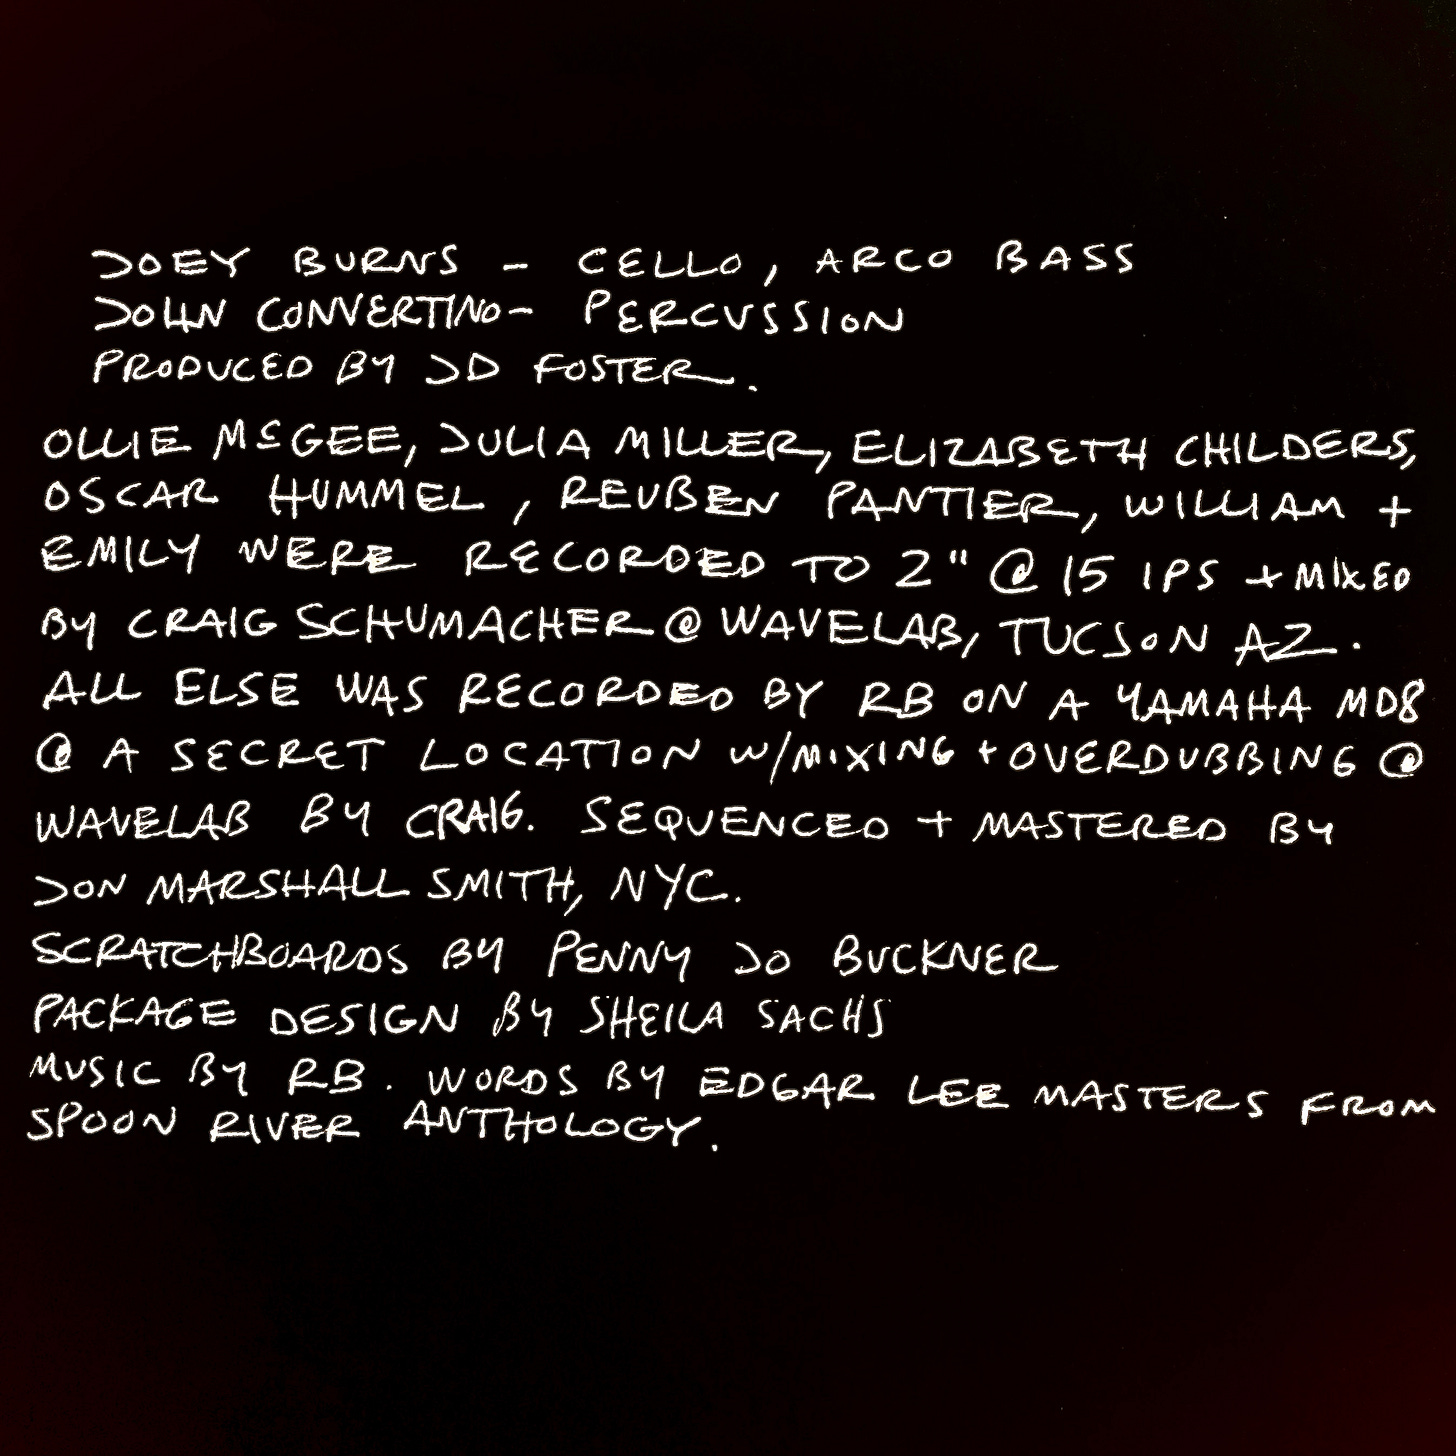 JOEY BURNS - CELLO, ARCO BASS
JOHN CONVERTINO- PERCUSSION
PRODUCED BY JD FOSTER.
OLLIE McGEE, JULIA MILLER, ELIZABETH CHILDERS,
OSCAR HUMMEL, REUBEN PANTIER, WILLIAM +
EMILY WERE RECORDED TO 2" @ 15 IPS + MIXED
BY CRAIG SCHUMACHER @ WAVELAB, TUCSON AZ.
ALL ELSE WAS RECORDED BY RB ON A YAMAHA MD8
@ A SECRET LOCATION W/MIXING + OVERDUBBING @
WAVELAB BY CRAIG. SEQUENCED + MASTERED BY
JON MARSHALL SMITH, NYC.
SCRATCHBOARDS BY PENNY JO BUCKNER
PACKAGE DESIGN BY SHEILA SACHS
MUSIC BY RB. WORDS BY EDGAR LEE MASTERS FROM
SPOON RIVER ANTHOLOGY.